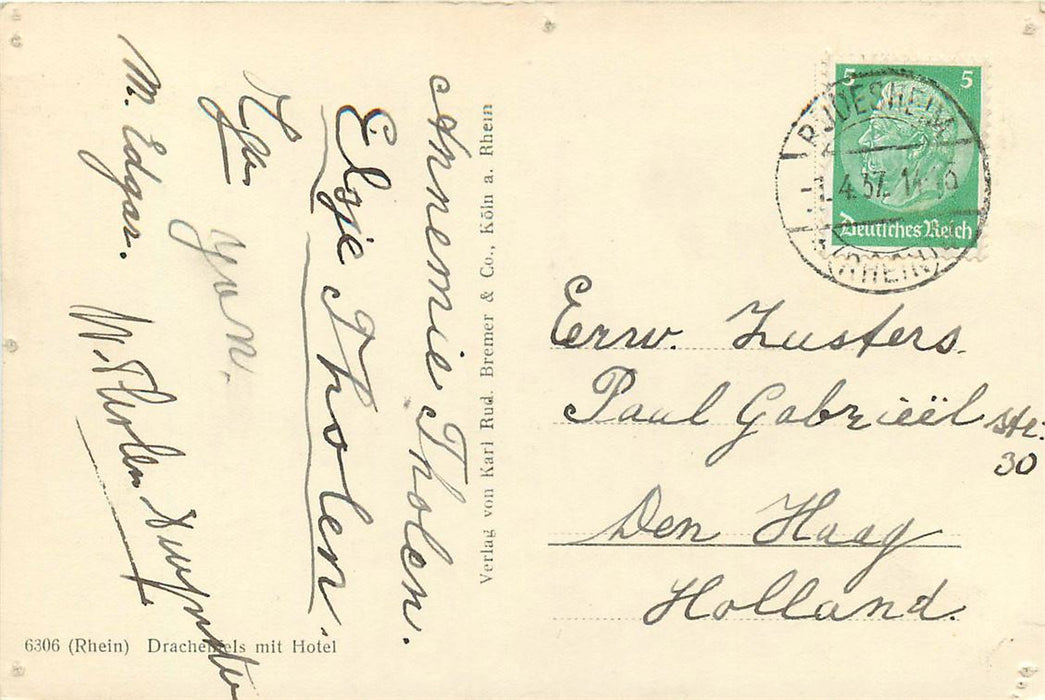 Annemie Tholen.
Elsje Tholen.
Yvon.
M. Edgar.
Verlag von Karl Rud. Bremer & Co., Köln a. Rhein
5 5
Deutsches Reich
RÜDESHEIM
4.37. 14-15
(RHEIN)
Eerw. Zusters.
Paul Gabriëël str.
30
Den Haag
Holland.
6306 (Rhein) Drachenfels mit Hotel